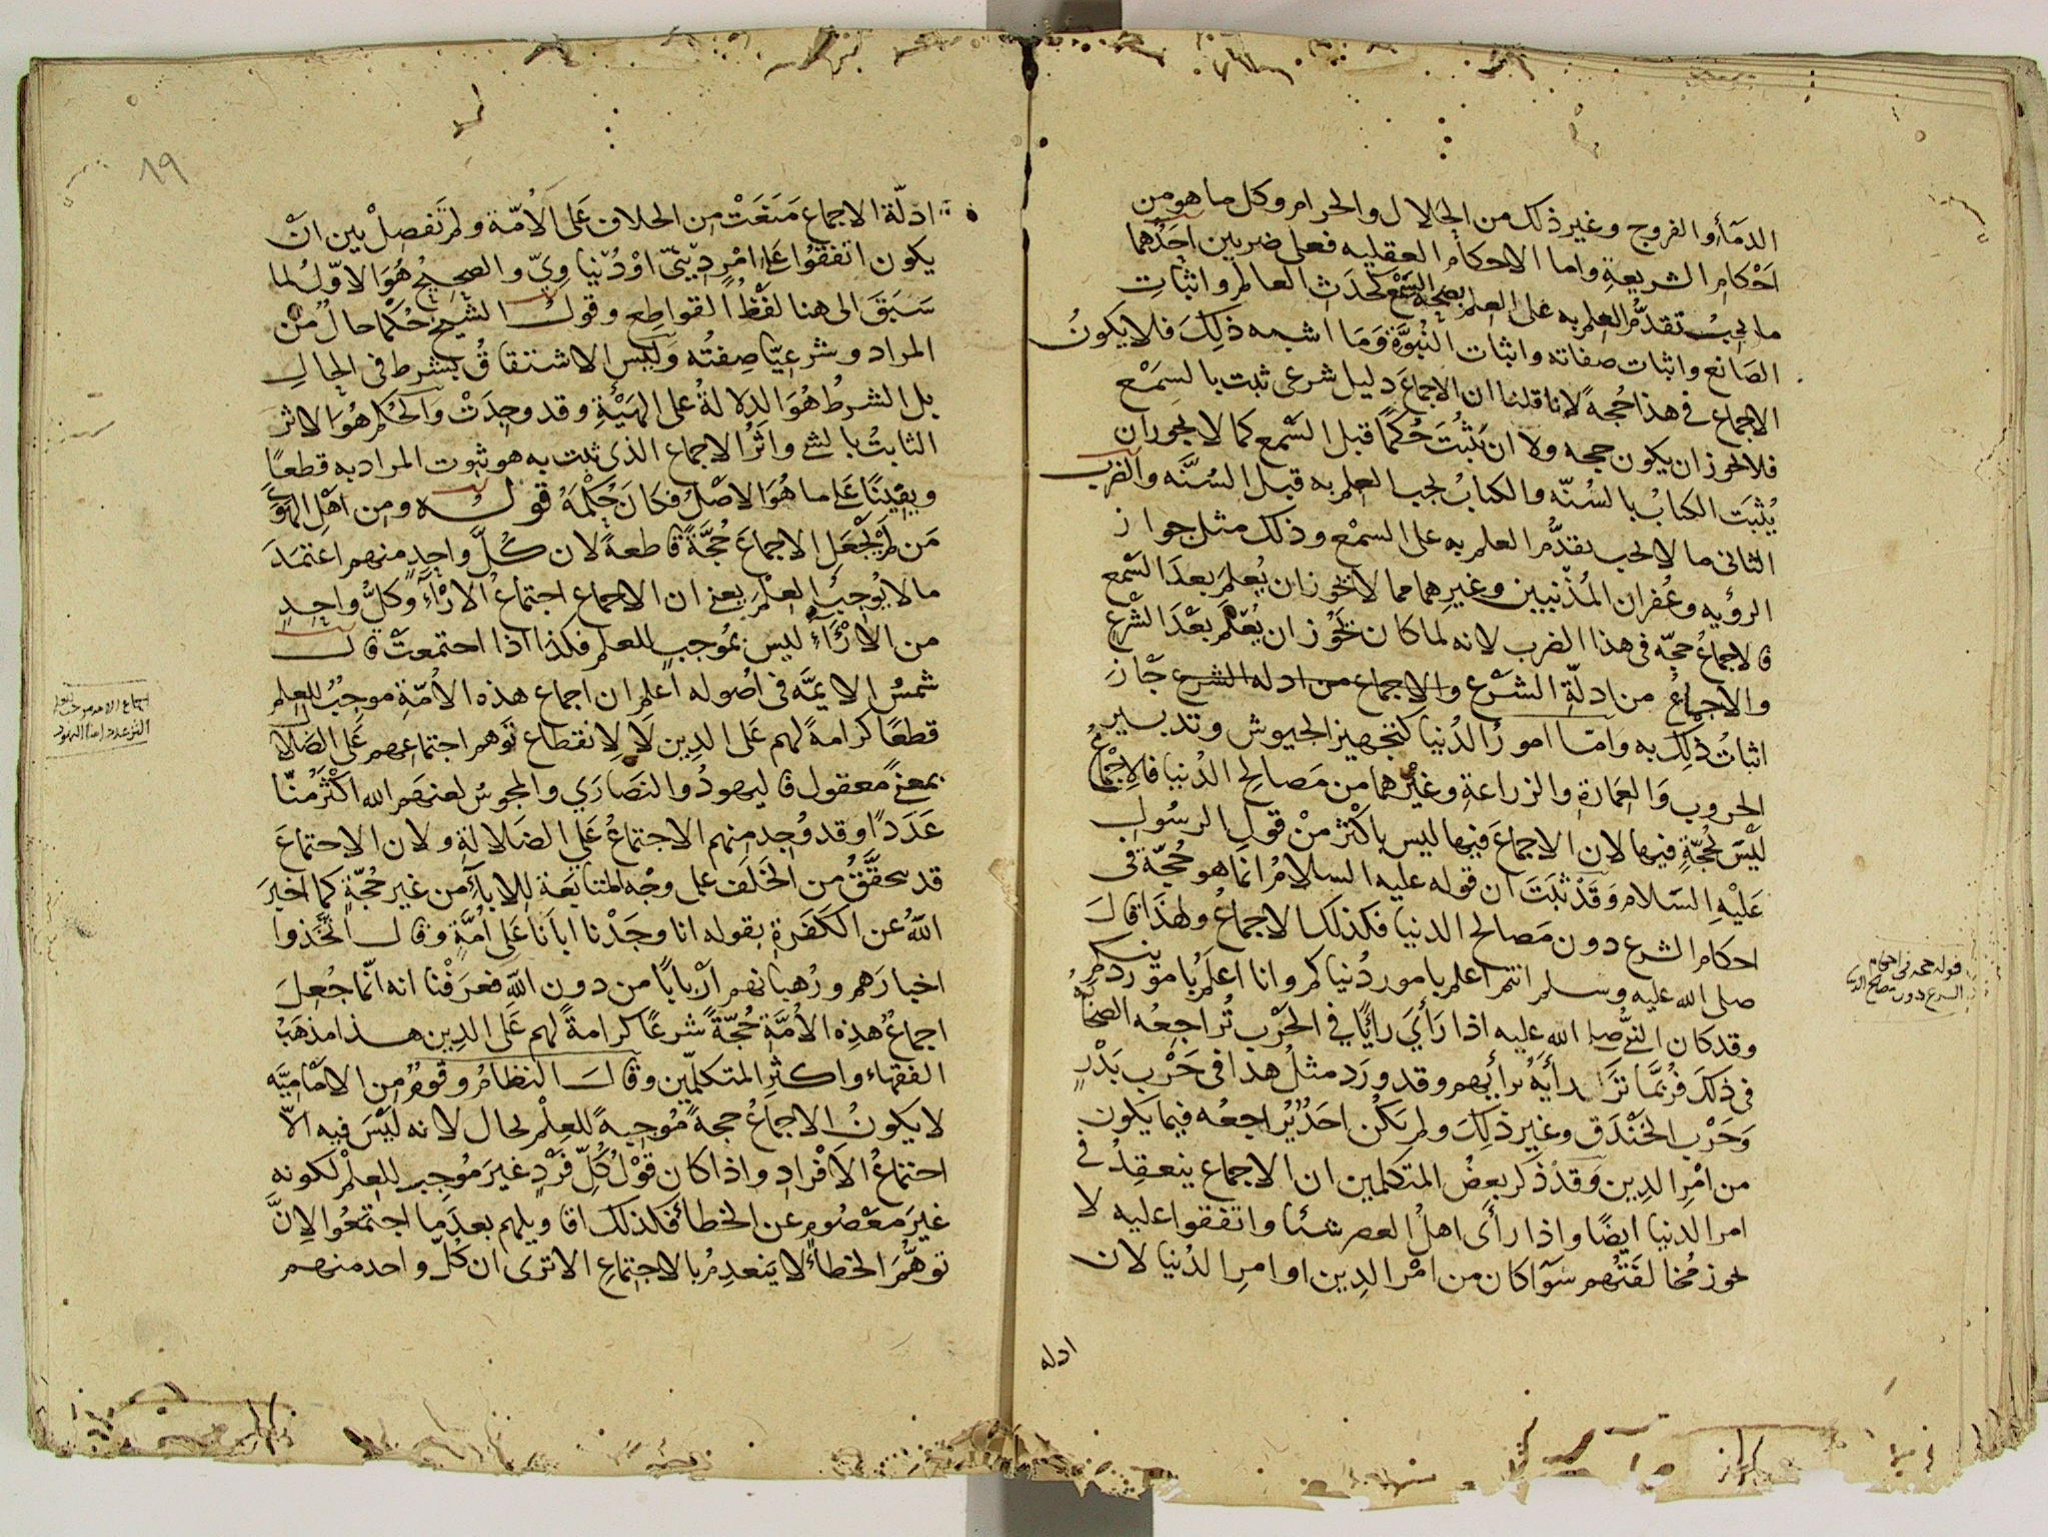 الدمآء والفروج وغير ذلك من الحلال والحرام وكل ما هو من
احكام الشريعة واما الاحكام العقليه فعلى ضربين احدهما
ما يجب تقدّم العلم به على العلم بصحة السمع كحدث العالم واثبات
الصانع واثبات صفاته واثبات النبوّة وما اشبه ذلك فلا يكون
الاجماع في هذا حجة لانا قلنا ان الاجماع دليل شرعي ثبت بالسمع
فلا يجوز ان يكون حجه ولا ان يثبت حكما قبل السمع كما لا يجوز ان
يثبت الكتاب بالسنّه والكتاب يجب العلم به قبل السنّه والضرب
الثاني ما لا يجب تقدّم العلم به على السمع وذلك مثل جواز
الرؤيه وغفران المذنبين وغيرهما مما لا يجوز ان يعلم بعد السمع
فالاجماع حجّه في هذا الضرب لانه لما كان يجوز ان يعلم بعد الشرع
والاجماع من ادلّة الشرع والاجماع من ادله الشرع جاز
اثبات ذلك به وامّا امور الدنيا كتجهيز الجيوش وتدبير
الحروب والعمارة والزراعة وغيرهما من مصالح الدنيا فالاجماع
ليس بحجّة فيها لان الاجماع فيها ليس باكثر من قول الرسول
عليه السلام وقد ثبت ان قوله عليه السلام انما هو حجّة في
احكام الشرع دون مصالح الدنيا فكذلك الاجماع ولهذا قال
صلى الله عليه وسلم انتم اعلم بامور دنياكم وانا اعلم بامور دينكم
وقد كان النبي صلى الله عليه اذا رأى رايًا في الحرب تراجعه الصحابة
في ذلك فربّما ترك رأيه برأيهم وقد ورد مثل هذا في حرب بدر
وحرب الخندق وغير ذلك ولم يكن احد يراجعه فيما يكون
من امر الدين وقد ذكر بعض المتكلمين ان الاجماع ينعقد في
امر الدنيا ايضًا واذا رأى اهل العصر شئا واتفقوا عليه لا
يجوز مخالفتهم سوآ كان من امر الدين او امر الدنيا لان
ادله
قوله حجه في احكام
الشرع دون مصالح الدنيا
٨٩
ادلّة الاجماع منعت من الخلاف على الامّة ولم تفصل بين ان
يكون اتفقوا على امر دينيّ او دنياويّ والصحيح هو الاوّل لما
سبق الى هنا لفظ القواطع وقول الشيخ حكما حال من
المراد وشرعيّا صفته وليس الاشتقاق بشرط في الحال
بل الشرط هو الدلالة على الهيئة وقد وجدت والحكم هو الاثر
الثابت بالشي واثر الاجماع الذي ثبت به هو ثبوت المراد به قطعًا
ويقينًا على ما هو الاصل فكان حكمه قوله ومن اهل الهوى
من لم يجعل الاجماع حجّةً قاطعةً لان كلّ واحد منهم اعتمد
ما لا يوجب العلم يعني ان الاجماع اجتماع الارآء وكلّ واحد
من الارآء ليس بموجب للعلم فكذا اذا اجتمعت قال
شمس الايمّه في اصوله اعلم ان اجماع هذه الامّة موجب للعلم
قطعًا كرامةً لهم على الدين لا لانقطاع توهم اجتماعهم على الضلال
بمعنى معقول فاليهود والنصارى والمجوس لعنهم الله اكثر منّا
عددًا وقد وجد منهم الاجتماع على الضلالة ولان الاجتماع
قد يتحقّق من الخلف على وجه المتابعة للابآء من غير حجّة كما اخبر
الله عن الكفرة بقوله انا وجدنا ابانا على امّة وقال اتخذوا
احبارهم ورهبانهم اربابًا من دون الله فعرفنا انه انّما جعل
اجماع هذه الامّة حجّةً شرعًا كرامةً لهم على الدين هذا مذهب
الفقهاء واكثر المتكلّمين وقال النظام وقوم من الاماميّه
لا يكون الاجماع حجة موجبةً للعلم بحال لانه ليس فيه الّا
اجتماع الافراد واذا كان قول كلّ فرد غير موجب للعلم لكونه
غير معصوم عن الخطأ فكذلك اقاويلهم بعد ما اجتمعوا لانّ
توهّم الخطأ لا ينعدم بالاجتماع الا ترى ان كلّ واحد منهم